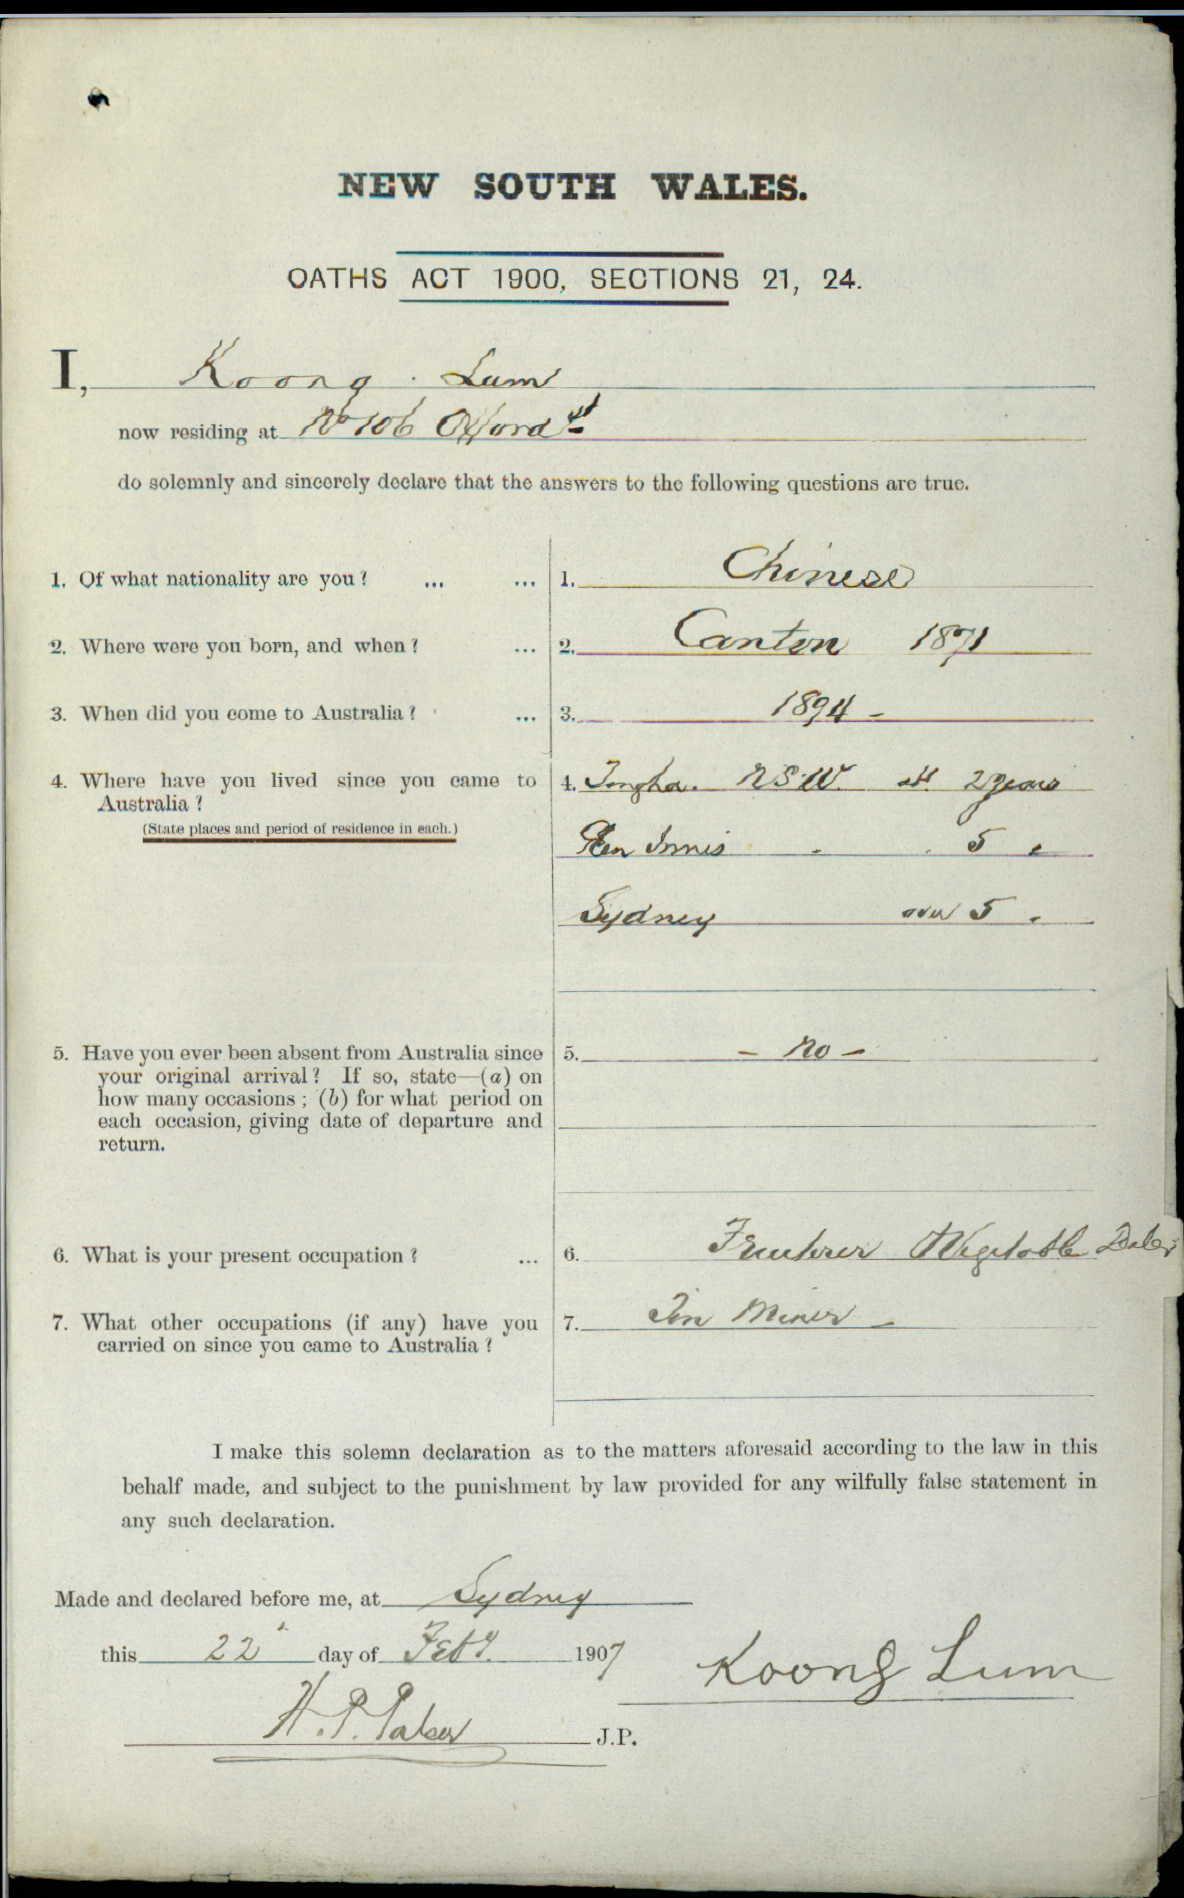 NEW SOUTH WALES.
OATHS ACT 1900, SECTIONS 21, 24.
I, Koong Lum
now residing at No 106 Oxford St
do solemnly and sincerely declare that the answers to the following questions are true.
1. Of what nationality are you ? ... ... 1. Chinese
2. Where were you born, and when ? ... 2. Canton 1871
3. When did you come to Australia ? ... 3. 1894 -
4. Where have you lived since you came to 4. Tingha. NSW. abt 2 years
Australia ?
(State places and period of residence in each.)
Glen Innis " 5 "
Sydney over 5 "
5. Have you ever been absent from Australia since 5. - No -
your original arrival ? If so, state—(a) on
how many occasions ; (b) for what period on
each occasion, giving date of departure and
return.
6. What is your present occupation ? ... 6. Fruiterer & Vegetable Dealer
7. What other occupations (if any) have you 7. Tin Miner -
carried on since you came to Australia ?
I make this solemn declaration as to the matters aforesaid according to the law in this
behalf made, and subject to the punishment by law provided for any wilfully false statement in
any such declaration.
Made and declared before me, at Sydney
this 22 day of Feby. 1907
Koong Lum
H. P. J.P.